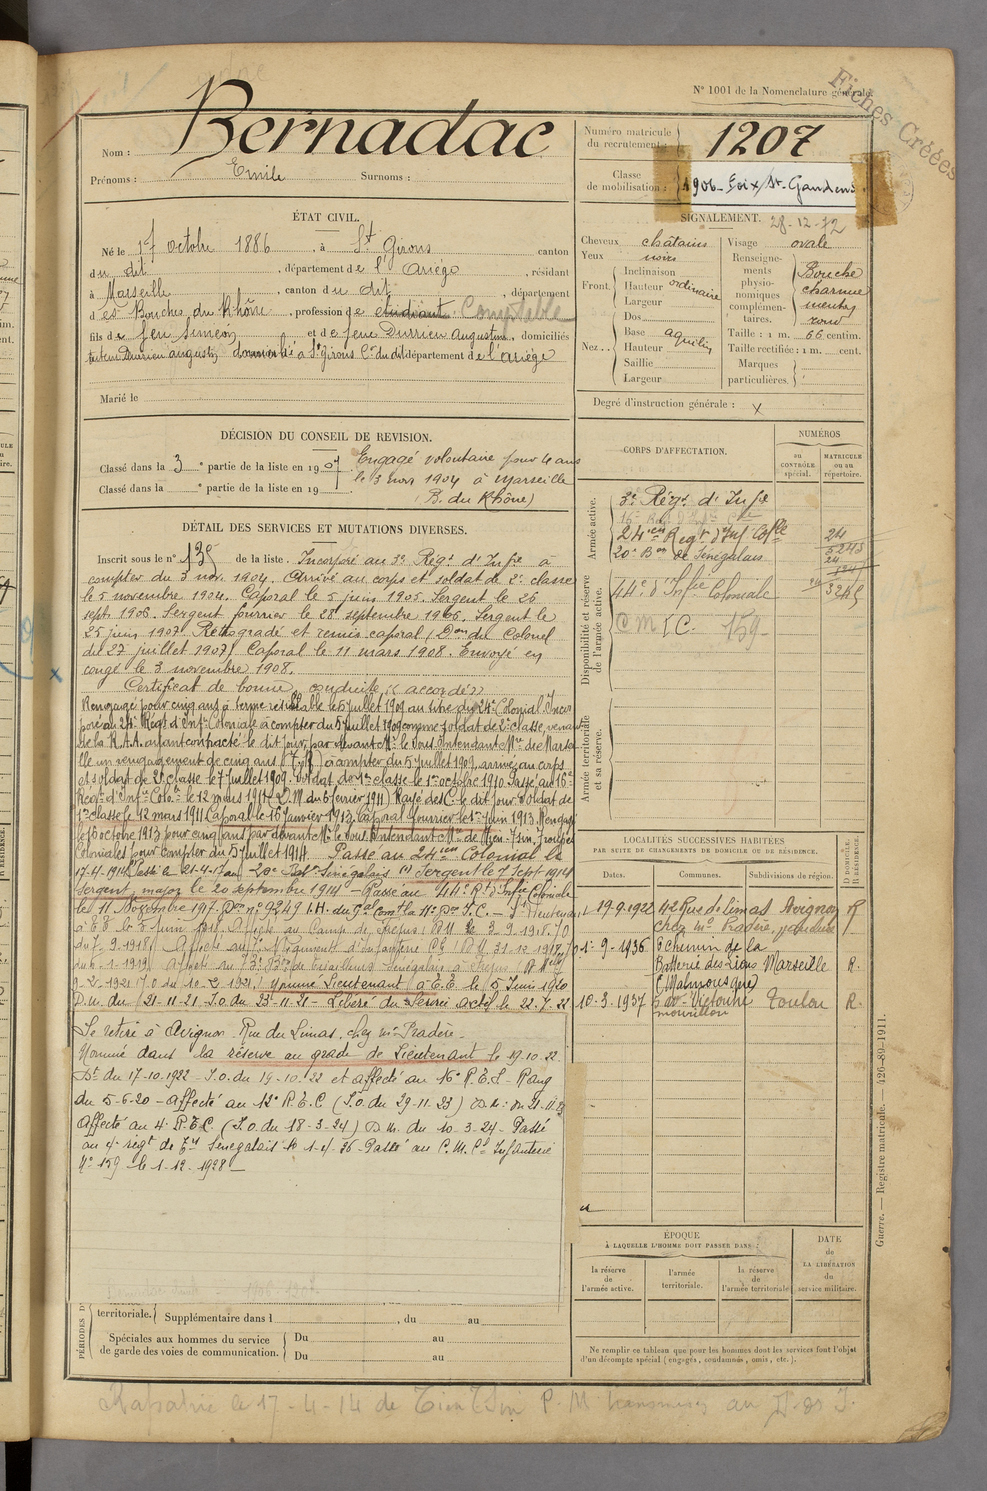 N° 1001 de la Nomenclature générale.
Fiches Créées
Nom : Bernadac
Prénoms : Emile Surnoms :
Numéro matricule du recrutement : 1207
Classe de mobilisation : 1906 - Foix/St-Gaudens
28-12-72
ÉTAT CIVIL.
Né le 17 octobre 1886, à St Girons canton
du dit, département de l'Ariège, résidant
à Marseille, canton du dit, département
des Bouches du Rhône, profession de étudiant Comptable
fils de feu Siméon et de feue Durrieu Augustine, domiciliés
tuteur Durrieu Augustin domicilié à St Girons Con du dit département de l'Ariège
Marié le
SIGNALEMENT.
Cheveux châtains
Yeux noirs
Front. Inclinaison
Hauteur ordinaire
Largeur
Nez.. Dos
Base aquilin
Hauteur
Saillie
Largeur
Visage ovale
Renseignements physionomiques complémentaires. Bouche charnue menton rond
Taille : 1 m. 66 centim.
Taille rectifiée : 1 m. cent.
Marques particulières.
Degré d'instruction générale : x
DÉCISION DU CONSEIL DE REVISION.
Classé dans la 3e partie de la liste en 1907
Classé dans la e partie de la liste en 19
Engagé volontaire pour 4 ans
le 3 nov 1904 à Marseille
(B. du Rhône)
DÉTAIL DES SERVICES ET MUTATIONS DIVERSES.
Inscrit sous le n° 135 de la liste. Incorporé au 3e Régt d'Infie à
compter du 3 nov. 1904. Arrivé au corps et soldat de 2e classe
le 5 novembre 1904. Caporal le 5 juin 1905. Sergent le 26
sept. 1906. Sergent fourrier le 28 septembre 1906. Sergent le
25 juin 1907. Rétrogradé et remis caporal (Don du Colonel
du 27 juillet 1907) Caporal le 11 mars 1908. Envoyé en
congé le 3 novembre 1908.
Certificat de bonne conduite "accordé"
Rengagé pour cinq ans à terme résiliable le 5 juillet 1909 au titre du 24e Colonial. Incor
poré au 24e Régt d'Infie Coloniale à compter du 5 juillet 1909 comme soldat de 2e classe, venant
de la R.A.A. ayant contracté le dit jour, par devant Mr le Sous Intendant Mre de Marseil
lle un rengagement de cinq ans à compter du 5 juillet 1909, arrivé au corps
et soldat de 2e classe le 7 juillet 1909. Soldat de 1re classe le 1er octobre 1910. Passé au 16e
Régt d'Infie Colole le 12 mars 1911 (D.M. du 6 février 1911) Rayé des C. le dit jour. Soldat de
1re classe le 12 mars 1911. Caporal le 16 janvier 1913. Caporal fourrier le 1er juin 1913. Rengagé
le 16 octobre 1913 pour cinq ans par devant Mr le Sous Intendant Mre de Tien-Tsin, Troupes
Coloniales pour compter du 5 juillet 1914. Passé au 24ème Colonial le
17-4-1914. Passé le 21-4-17 au 20e Batn Sénégalais. Sergent le 7 sept 1914
Sergent major le 20 septembre 1914 - Passé au 44e Rt d'Infie Coloniale
le 11 Novembre 1917. Don n° 9249 I.H. du Gal Comt la 11e Don I.C. - S/Lieutenant
à T.T. le 5 Juin 1918. Affecté au Camp de Fréjus (D.M. le 3-9-1918. J.O
du 7-9-1918). Affecté au Régiment d'Infanterie Cle (D.M. 31-12-1918, J.O
du 6-1-1919). Affecté au 73e Bon de Tirailleurs Sénégalais à Fréjus
J.O du 10-2-1921) Nommé Lieutenant à T.T. le 5 Juin 1920
D.M. du (21-11-21. J.O. du 23-11-21 - Libéré du Service actif le 22.7.22
Se retire à Avignon - Rue du Limas, chez Mr Pradère.
Nommé dans la réserve au grade de Lieutenant le 19.10.22
Dt du 17-10-1922 - J.O. du 19-10-22 et affecté au 16e R.T.S - Rang
du 5-6-20 - Affecté au 12e R.T.C (J.O. du 29-11-23) D.M. : du 21-11-23
Affecté au 4e R.T.C. (J.O. du 18-3-24) D.M. du 10-3-24 - Passé
au 4e régt de Trs Sénégalais le 1-4-26 - Passé au C.M. Cl Infanterie
N° 159 le 1-12-1928 -
CORPS D'AFFECTATION.
NUMÉROS
au CONTRÔLE spécial.
MATRICULE ou au répertoire.
Armée active.
3e Régt d'Infie
16e Régt d'Infie Cle
24ème Régt d'Inf Colle
20e Bon de Sénégalais
Disponibilité et réserve de l'armée active.
44e d'Infie Coloniale
C M I C. 159-
Armée territoriale et sa réserve.
LOCALITÉS SUCCESSIVES HABITÉES
PAR SUITE DE CHANGEMENTS DE DOMICILE OU DE RÉSIDENCE.
Dates. Communes. Subdivisions de région. D DOMICILE. R RÉSIDENCE.
19-9-1922 42 Rue de Limas Avignon R
chez Mr Pradère
1-9-1936 6 chemin de la
Batterie des Lions Marseille R.
(Malmousque)
10-3-1937 5 av. Victorine Toulon R.
mourillon
ÉPOQUE
À LAQUELLE L'HOMME DOIT PASSER DANS :
la réserve de l'armée active.
l'armée territoriale.
la réserve de l'armée territoriale
DATE de LA LIBÉRATION du service militaire.
PÉRIODES D'
territoriale. Supplémentaire dans l , du au
Spéciales aux hommes du service de garde des voies de communication. Du au
Du au
Ne remplir ce tableau que pour les hommes dont les services font l'objet
d'un décompte spécial (engagés, condamnés, omis, etc.).
Guerre. — Registre matricule. — 426-89-1911.
Rapatrié le 17-4-14 de Tien Tsin